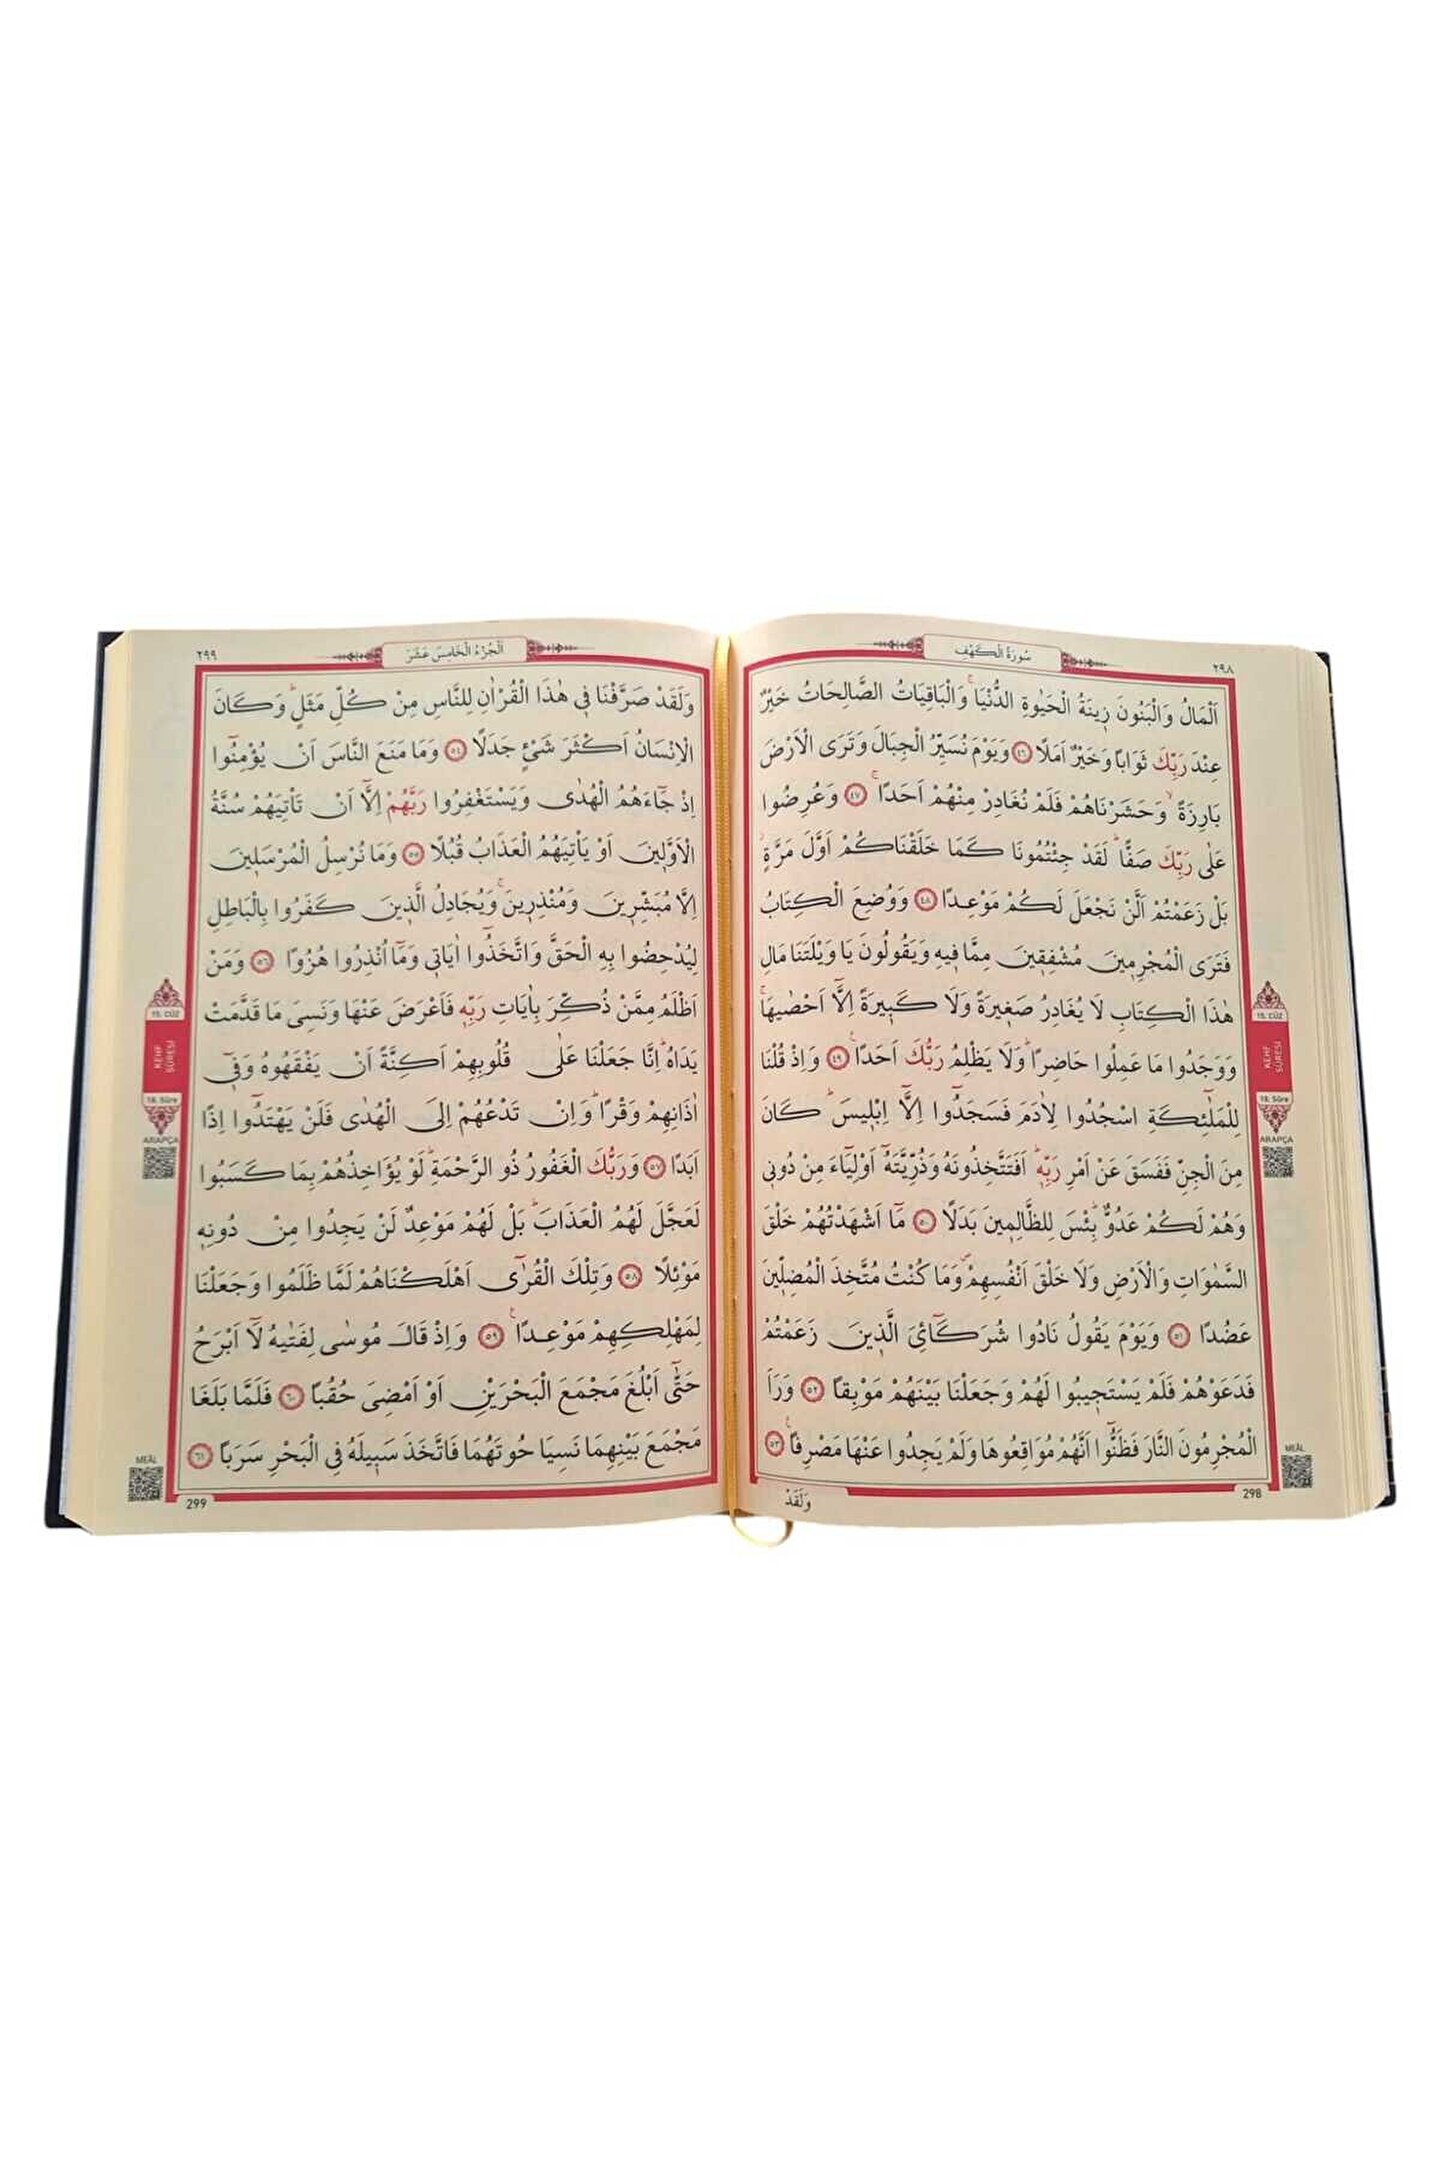 سُورَةُ الْكَهْفِ
٢٩٨
اَلْمَالُ وَالْبَنُونَ ز۪ينَةُ الْحَيٰوةِ الدُّنْيَاۚ وَالْبَاقِيَاتُ الصَّالِحَاتُ خَيْرٌ
عِنْدَ رَبِّكَ ثَوَاباً وَخَيْرٌ اَمَلًا ﴿٤٦﴾ وَيَوْمَ نُسَيِّرُ الْجِبَالَ وَتَرَى الْاَرْضَ
بَارِزَةًۙ وَحَشَرْنَاهُمْ فَلَمْ نُغَادِرْ مِنْهُمْ اَحَدًاۚ ﴿٤٧﴾ وَعُرِضُوا
عَلٰى رَبِّكَ صَفًّاۜ لَقَدْ جِئْتُمُونَا كَمَا خَلَقْنَاكُمْ اَوَّلَ مَرَّةٍۘ
بَلْ زَعَمْتُمْ اَلَّنْ نَجْعَلَ لَكُمْ مَوْعِدًا ﴿٤٨﴾ وَوُضِعَ الْكِتَابُ
فَتَرَى الْمُجْرِم۪ينَ مُشْفِق۪ينَ مِمَّا ف۪يهِ وَيَقُولُونَ يَا وَيْلَتَنَا مَالِ
هٰذَا الْكِتَابِ لَا يُغَادِرُ صَغ۪يرَةً وَلَا كَب۪يرَةً اِلَّٓا اَحْصٰيهَاۚ
وَوَجَدُوا مَا عَمِلُوا حَاضِرًاۜ وَلَا يَظْلِمُ رَبُّكَ اَحَدًا۟ ﴿٤٩﴾ وَاِذْ قُلْنَا
لِلْمَلٰٓئِكَةِ اسْجُدُوا لِاٰدَمَ فَسَجَدُٓوا اِلَّٓا اِبْل۪يسَۜ كَانَ
مِنَ الْجِنِّ فَفَسَقَ عَنْ اَمْرِ رَبِّه۪ۜ اَفَتَتَّخِذُونَهُ وَذُرِّيَّتَهُٓ اَوْلِيَٓاءَ مِنْ دُون۪ي
وَهُمْ لَكُمْ عَدُوٌّۜ بِئْسَ لِلظَّالِم۪ينَ بَدَلًا ﴿٥٠﴾ مَٓا اَشْهَدْتُهُمْ خَلْقَ
السَّمٰوَاتِ وَالْاَرْضِ وَلَا خَلْقَ اَنْفُسِهِمْۖ وَمَا كُنْتُ مُتَّخِذَ الْمُضِلّ۪ينَ
عَضُدًا ﴿٥١﴾ وَيَوْمَ يَقُولُ نَادُوا شُرَكَٓائِيَ الَّذ۪ينَ زَعَمْتُمْ
فَدَعَوْهُمْ فَلَمْ يَسْتَج۪يبُوا لَهُمْ وَجَعَلْنَا بَيْنَهُمْ مَوْبِقًا ﴿٥٢﴾ وَرَاَ
الْمُجْرِمُونَ النَّارَ فَظَنُّٓوا اَنَّهُمْ مُوَاقِعُوهَا وَلَمْ يَجِدُوا عَنْهَا مَصْرِفًا۟ ﴿٥٣﴾
وَلَقَدْ
298
15. CÜZ
KEHF
SÛRESİ
18. Sûre
ARAPÇA
MEÂL
٢٩٩
اَلْجُزْءُ الْخَامِسَ عَشَرَ
وَلَقَدْ صَرَّفْنَا ف۪ي هٰذَا الْقُرْاٰنِ لِلنَّاسِ مِنْ كُلِّ مَثَلٍۜ وَكَانَ
الْاِنْسَانُ اَكْثَرَ شَيْءٍ جَدَلًا ﴿٥٤﴾ وَمَا مَنَعَ النَّاسَ اَنْ يُؤْمِنُٓوا
اِذْ جَٓاءَهُمُ الْهُدٰى وَيَسْتَغْفِرُوا رَبَّهُمْ اِلَّٓا اَنْ تَأْتِيَهُمْ سُنَّةُ
الْاَوَّل۪ينَ اَوْ يَأْتِيَهُمُ الْعَذَابُ قُبُلًا ﴿٥٥﴾ وَمَا نُرْسِلُ الْمُرْسَل۪ينَ
اِلَّا مُبَشِّر۪ينَ وَمُنْذِر۪ينَۚ وَيُجَادِلُ الَّذ۪ينَ كَفَرُوا بِالْبَاطِلِ
لِيُدْحِضُوا بِهِ الْحَقَّ وَاتَّخَذُٓوا اٰيَات۪ي وَمَٓا اُنْذِرُوا هُزُوًا ﴿٥٦﴾ وَمَنْ
اَظْلَمُ مِمَّنْ ذُكِّرَ بِاٰيَاتِ رَبِّه۪ فَاَعْرَضَ عَنْهَا وَنَسِيَ مَا قَدَّمَتْ
يَدَاهُۜ اِنَّا جَعَلْنَا عَلٰى قُلُوبِهِمْ اَكِنَّةً اَنْ يَفْقَهُوهُ وَف۪ٓي
اٰذَانِهِمْ وَقْرًاۜ وَاِنْ تَدْعُهُمْ اِلَى الْهُدٰى فَلَنْ يَهْتَدُٓوا اِذًا
اَبَدًا ﴿٥٧﴾ وَرَبُّكَ الْغَفُورُ ذُو الرَّحْمَةِۜ لَوْ يُؤَاخِذُهُمْ بِمَا كَسَبُوا
لَعَجَّلَ لَهُمُ الْعَذَابَۜ بَلْ لَهُمْ مَوْعِدٌ لَنْ يَجِدُوا مِنْ دُونِه۪
مَوْئِلًا ﴿٥٨﴾ وَتِلْكَ الْقُرٰٓى اَهْلَكْنَاهُمْ لَمَّا ظَلَمُوا وَجَعَلْنَا
لِمَهْلِكِهِمْ مَوْعِدًا۟ ﴿٥٩﴾ وَاِذْ قَالَ مُوسٰى لِفَتٰيهُ لَٓا اَبْرَحُ
حَتّٰٓى اَبْلُغَ مَجْمَعَ الْبَحْرَيْنِ اَوْ اَمْضِيَ حُقُبًا ﴿٦٠﴾ فَلَمَّا بَلَغَا
مَجْمَعَ بَيْنِهِمَا نَسِيَا حُوتَهُمَا فَاتَّخَذَ سَب۪يلَهُ فِي الْبَحْرِ سَرَبًا ﴿٦١﴾
299
15. CÜZ
KEHF
SÛRESİ
18. Sûre
ARAPÇA
MEÂL